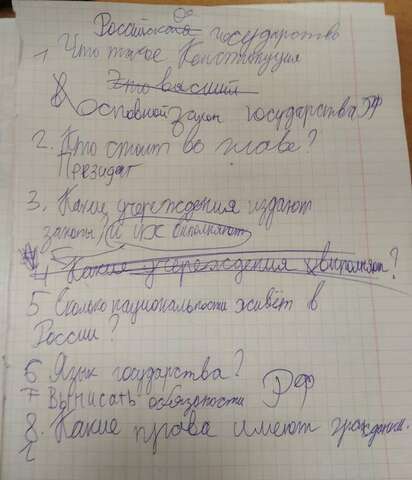 Российское государство
1 Что такое Конституция
Это высший
8 основной закон государства РФ
2. Кто стоит во главе?
Президат
3. Какие учереждения издают
законы, и их исполняют
4 Какие учереждения исполняют?
5 Сколько национальности живёт в
России?
6 Язык государства?
7 Выписать обязаности РФ
8. Какие права имеют граждании.